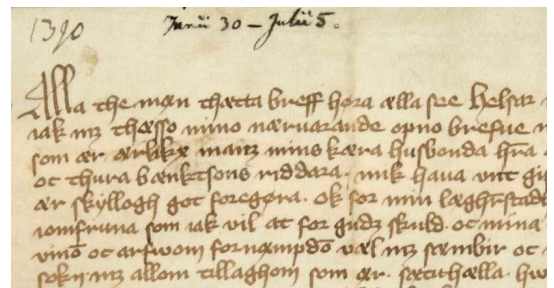 1390
Junii 30 – Julii 5.
Alla the mæn thætta breff høra ælla see helsar
iak mz thæsso mino nærvarande opno brefue
som ær ærlikx manz mins kæra husbonda hra
oc thura bænktsons riddara. mik hava unt
ær skyllogh got foregøra. ok for min læghrstadh
iomfruna som iak vil at for gudz skuld. oc mina
vino oc arfwom fornæmpdo væl mz sæmbir oc
sokn. mz allom tillaghom som ær. sætuhælla.